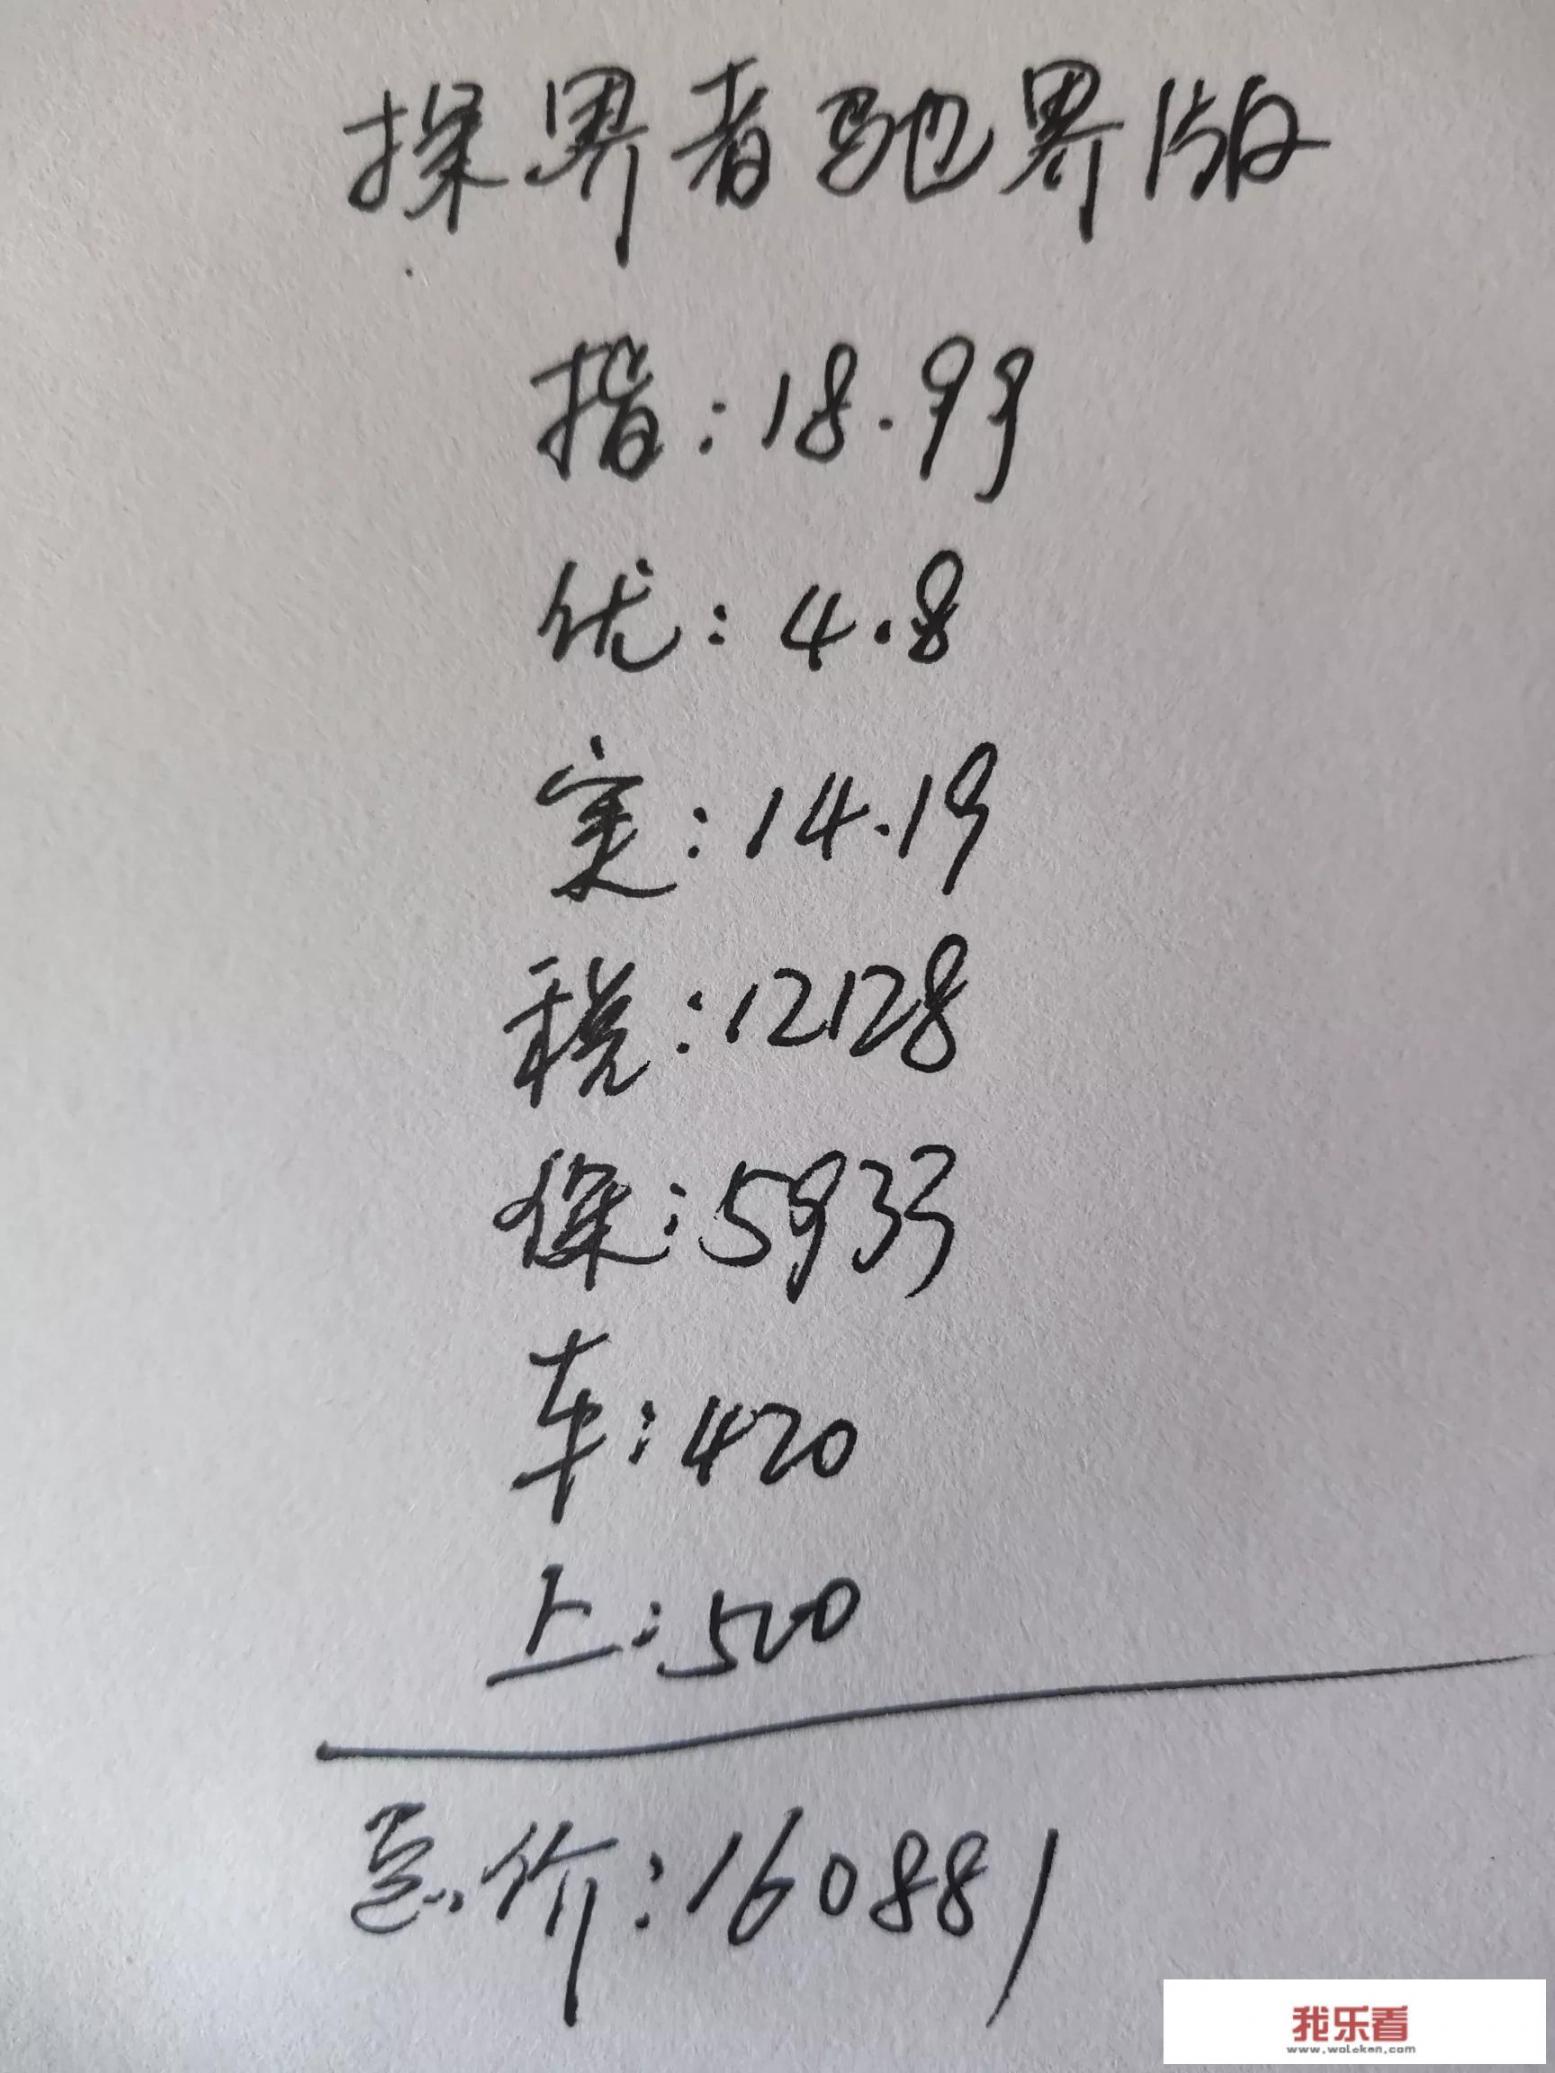 探界者驰界版
指:18.99
优:4.8
实:14.19
税:12128
保:5933
车:420
上:500
总价:160881
我乐看
www.woleken.com